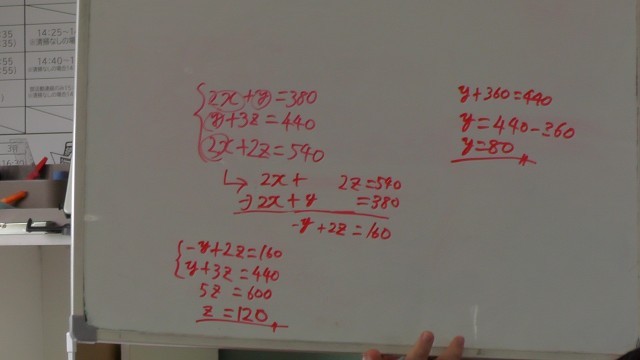 14:25~
※運행なしの場合
14:40~
2x+y=380
y+3z=440
2x+2z=540
↳ 2x+ 2z=540
-) 2x+y =380
-y+2z=160
{-y+2z=160
y+3z=440
5z=600
z=120
y+360=440
y=440-360
y=80